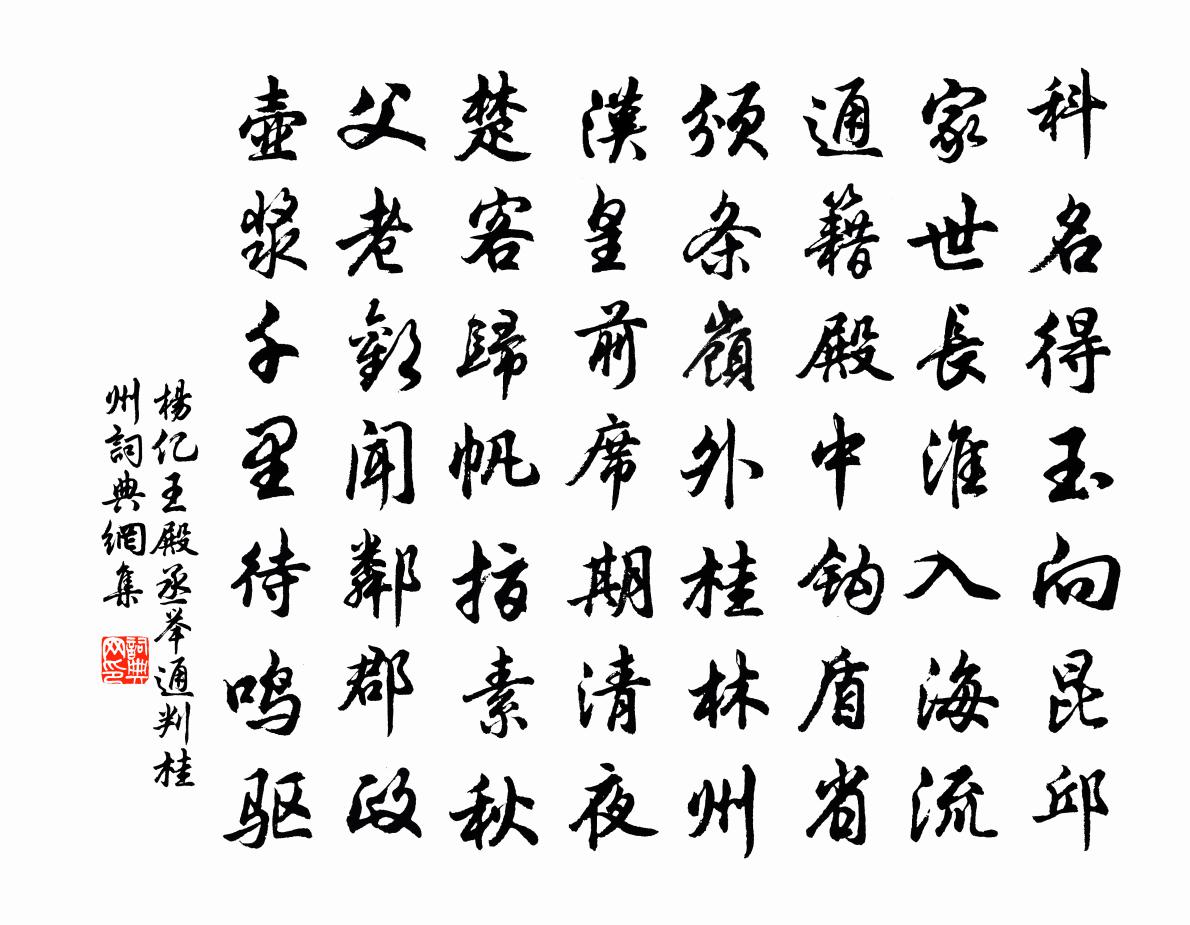 科名得玉向昆邱
家世長淮入海流
通籍殿中鈎盾省
頒条嶺外桂林州
漢皇前席期清夜
楚客歸帆指素秋
父老歡聞鄰郡政
壺漿千里待鸣驱
楊亿王殿丞举通判桂
州詞典網集
詞典网印